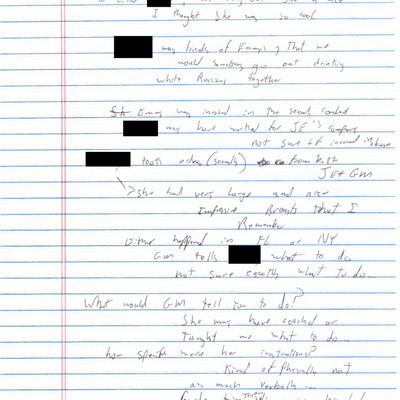 I thought she was so cool
was friends of Emmy's; that we
would sometimes go out drinking
white Russians together
Emmy was involved in the sexual conduct
may have worked for JE's company
not sure if involved in abuse
took orders (sexually) from both
JE + GM
→ she had very large and nice
Impressive Breasts that I
Remember
either happened in FL or NY
GM tells what to do
not sure exactly what to do...
What would GM tell you to do?
She may have coached or
taught me what to do...
how specific were her instructions?
Kind of physically not
as much verbally in